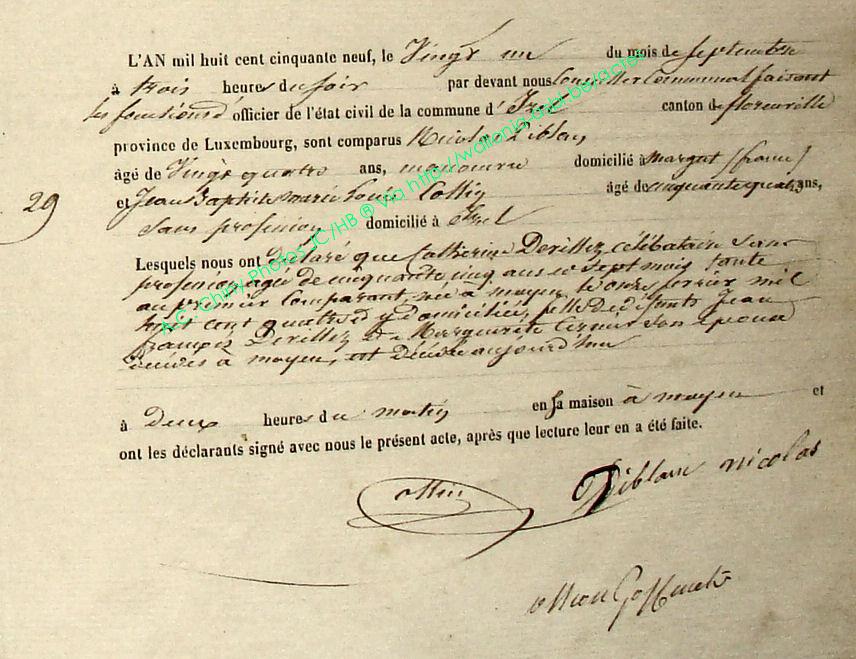 L'AN mil huit cent cinquante neuf, le Vingt un du mois de septembre
à trois heures du soir par devant nous Conseiller Communal faisant
les fonctions d'officier de l'état civil de la commune d' Izel canton de florenville
province de Luxembourg, sont comparus Nicolas Piblan,
âgé de Vingt quatre ans, manoeuvre domicilié à margut (france)
et Jean Baptiste marie Louis Collin âgé de cinquante quatre ans,
29
sans profession domicilié à Izel
Lesquels nous ont déclaré que Catherine Devillez, célébataire sans
profession agée de cinquante cinq ans et sept mois tante
au premier Comparant, née à moyen le onze février mil
huit cent quatre d y Domiciliée, fille de défunts Jean
françois Devillez et Marguerite son épouse
décédés à moyen, est décédée aujourd'hui
à Deux heures du matin en sa maison à moyen et
ont les déclarants signé avec nous le présent acte, après que lecture leur en a été faite.
Collin Piblan nicolas
Goffinet
A.C. Chiny Photos JC/HB ® Via http://wallonia-asbl.be/actes